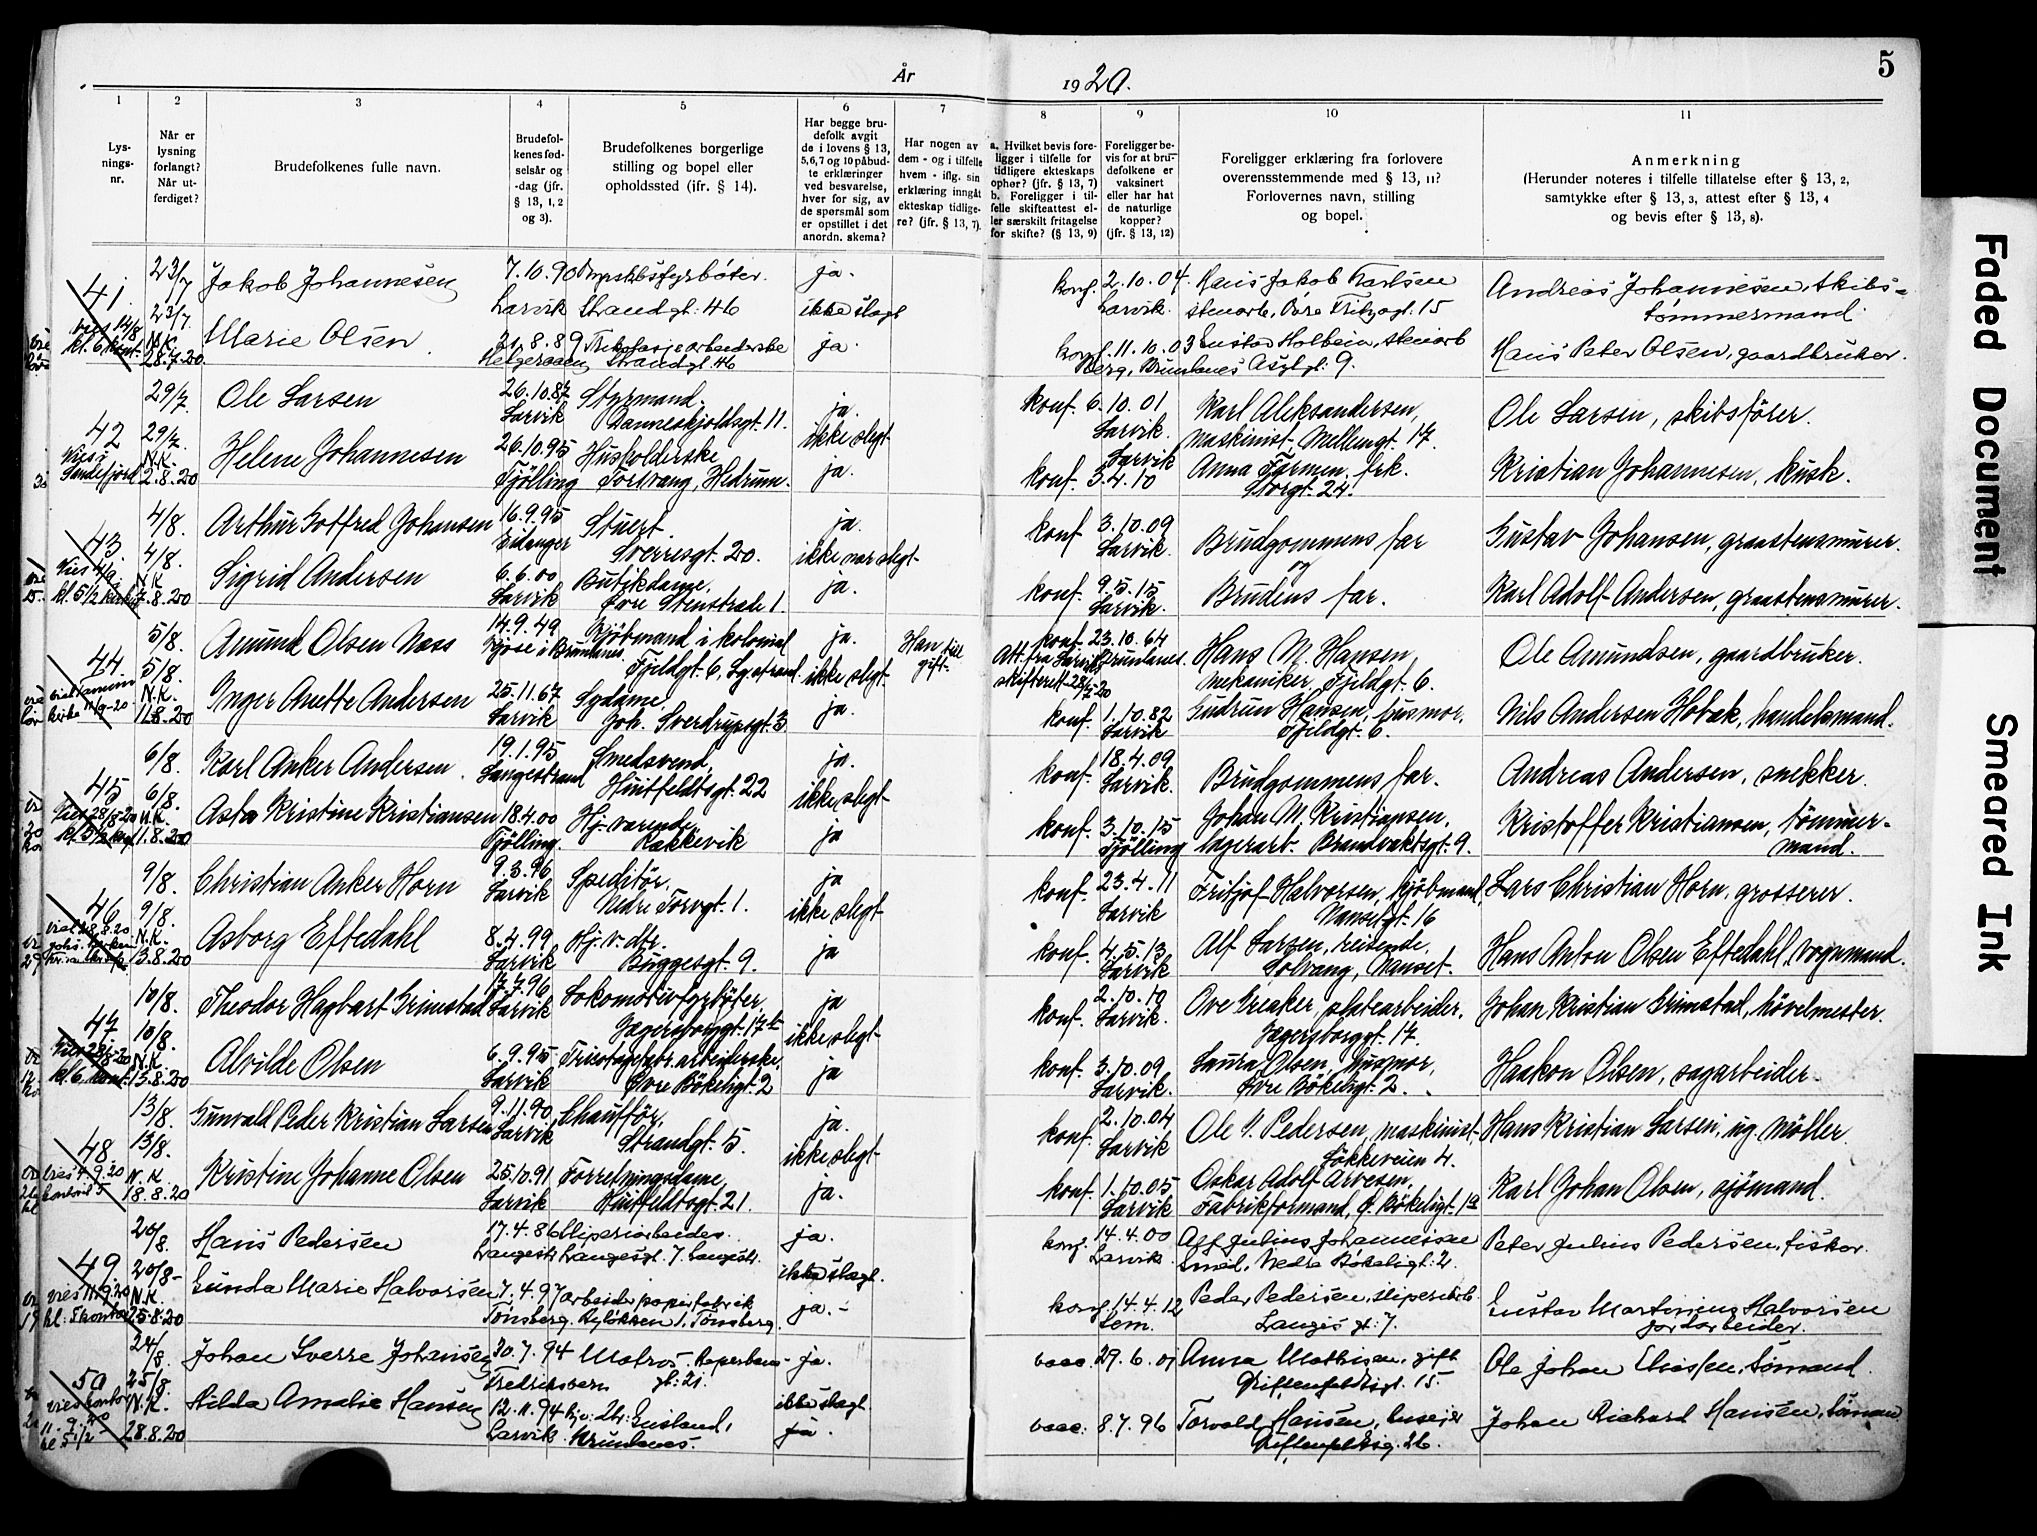 År 1920.
5
1
2
3
4
5
6
7
8
9
10
11
Lys-
nings-
nr.
Når er
lysning
forlangt?
Når ut-
ferdiget?
Brudefolkenes fulle navn.
Brudefol-
kenes fød-
selsår og
-dag (jfr.
§ 13, 1, 2
og 3).
Brudefolkenes borgerlige
stilling og bopel eller
opholdssted (jfr. § 14).
Har begge bru-
defolk avgit
de i lovens § 13,
5,6,7 og 10 påbud-
te erklæringer
ved besvarelse,
hver for sig, av
de spørsmål som
er opstillet i det
anordn. skema?
Har nogen av
dem - og i tilfelle
hvem - iflg. sin
erklæring inngått
ekteskap tidlige-
re? (jfr. § 13, 7).
a. Hvilket bevis fore-
ligger i tilfelle for
tidligere ekteskaps
ophør? (jfr. § 13, 7)
b. Foreligger i til-
felle skifteattest el-
ler særskilt fritagelse
for skifte? (§ 13, 9)
Foreligger be-
vis for at bru-
defolkene er
vaksinert
eller har hat
de naturlige
kopper?
(jfr. § 13, 12)
Foreligger erklæring fra forlovere
overensstemmende med § 13, 11?
Forlovernes navn, stilling
og bopel.
Anmerkning
(Herunder noteres i tilfelle tillatelse efter § 13, 2,
samtykke efter § 13, 3, attest efter § 13, 4
og bevis efter § 13, 8).
41.
23/7 Jakob Johannesen 7.10.90 ja. konf. 2.10.04. Hans Jakob Karlsen Andreas Johannesen, skibs-
23/7. Larvik Strandgt. 46 ikke slegt Larvik. stenarb, Øvre Fritzøgt. 15 tømmermand.
N.K. Marie Olsen 21.8.89 ja. konf. 11.10.03 Gustav Holbein, stenarb Hans Peter Olsen, gaardbruker.
28.7.20 Helgeraaen Strandgt. 46 Berg, Brunlanes 9.
42
29/7. Ole Larsen 26.10.87 Styrmand, ja. konf. 6.10.01 Karl Aleksandersen, Ole Larsen, skibsfører.
29/7. Larvik Danneskjoldsgt. 11. ikke slegt Larvik. Maskinist, Mellemgt. 17
Vies i
Sandefjord
N.K. Helene Johannesen 26.10.95 Husholderske ja. konf. 3.4.10 Anna Formen, frk. Kristian Johannesen, kusk.
2.8.20 Tjölling Torsvang, Hedrum. Larvik Storgt. 24.
43.
4/8. Arthur Gotfred Johansen 16.9.95 Stuert. ja. konf 3.10.09 Brudgommens far Gustav Johansen, graastensmurer.
4/8. Eidanger Sverresgt. 20. ikke nær slegt Larvik. og
N.K. Sigrid Andersen 6.6.00 Butikdame, ja. konf. 9.5.15 Brudens far. Karl Adolf Andersen, graastensmurer.
7.8.20 Larvik Øvre Stenstræde 1. Larvik.
44
5/8. Amund Olsen Næss 14.9.49 Kjøbmand i kolonial ja. Han till gift. konf. 23.10.64 Hans M. Hansen, Ole Amundsen, gaardbruker.
5/8. Kjose i Brunlanes. Fjeldgt. 6, Lg.strand. ikke slegt Att. fra Larvik skifterett 28/7-20 Brunlanes. Mekaniker, Fjeldgt. 6.
N.K. Inger Anette Andersen 25.11.67 Sydame, ja. konf. 1.10.82 Gudrun Hansen, husmor. Nils Andersen Hobæk, handelsmand.
11.8.20 Larvik Joh. Sverdrupsgt. 3 Larvik Fjeldgt. 6.
45
6/8. Karl Anker Andersen. 19.1.95 Smedsvend, ja. konf. 18.4.09 Brudgommens far. Andreas Andersen, snekker.
6/8. Langestrand Huitfeldtsgt. 22 ikke slegt Larvik.
N.K. Asta Kristine Kristiansen 18.4.00 Hj. værende ja konf. 3.10.15 Johan M. Kristiansen, Kristoffer Kristiansen, tömmer-
11.8.20 Tjölling. Rakkevik Tjölling lagerarb. Brandvaktsgt. 9. mand.
46
9/8. Christian Anker Horn 9.3.96 Speditør, ja konf. 23.4.11 Fritjof Halvorsen, kjöbmand, Lars Christian Horn, grosserer.
9/8. Larvik Nedre Torvgt. 1. ikke slegt Larvik Nansetgt. 16
N.K. Asborg Eftedahl 8.4.99 Hj. v. dtr. ja konf. 4.5.13 Alf Larsen, reisende, Hans Anton Olsen Eftedahl, vognmand.
13.8.20 Larvik Buggesgt. 9. Larvik Solvang, Nanset.
47
10/8. Theodor Hagbart Grimstad 17.7.96 Lokomotivfyrbøter, ja konf. 2.10.10 Ove Creaker, platearbeider. Johan Kristian Grimstad, hövelmester.
10/8. Larvik Jegersborggt. 17 b ikke slegt Larvik. Jegersborggt. 17.
N.K. Alvilde Olsen 6.9.95 Tricotagefabr. arbeiderske, ja konf. 3.10.09 Laura Olsen, husmor, Haakon Olsen, sagarbeider.
13.8.20 Larvik Øvre Bökeligt. 2 Larvik. Øvre Bökeligt. 2.
48
13/8. Gunvald Peder Kristian Larsen 9.11.90 Chauffør, ja. konf. 2.10.04 Ole I. Pedersen, maskinist. Hans Kristian Larsen, ug. Möller.
13/8. Larvik Strandgt. 5. ikke slegt Larvik Løkkeveien 4.
vies 4.9.20
N.K. Kristine Johanne Olsen 25.10.91 Forretningsdame, ja. konf. 1.10.05 Oskar Adolf Arvesen, Karl Johan Olsen, sjömand.
18.8.20 Larvik Huitfeldtsgt. 21. Larvik Fabrikformand, Ø. Bökeligt. 1a
49
20/8. Hans Pedersen 17.4.86 sliperiarbeider. ja. konf. 14.4.00 Alf Julius Johannessen Peter Julius Pedersen, fisker.
20/8 Langestr. Langesgt. 7. Langestr. ikke slegt. Larvik. smed, Nedre Bökeligt. 2.
N.K. Gunda Marie Halvorsen 7.4.97 arbeider papirfabrik ja. konf. 14.4.12 Peder Pedersen, sliperiarb. Gustav Martinius Halvorsen
25.8.20 Tønsberg. 1, Tønsberg. Sem. Langesgt. 7. jordarbeider.
50
24/8. Johan Sverre Johansen 30.7.94 Matros, Reperban- ja. vacc. 29.6.01 Anna Mathisen, gift Ole Johan Eliassen, sömand.
25/8. Fredriksvern gt. 21. ikke slegt. Griffenfeldtsgt. 15.
N.K. Hilda Amalie Hansen 12.11.94 ja. vacc. 8.7.96 Torvald Hansen, huseier Johan Richard Hansen, sömand
28.8.20 Larvik. Brunlanes. 26.
Faded Document
Smeared Ink